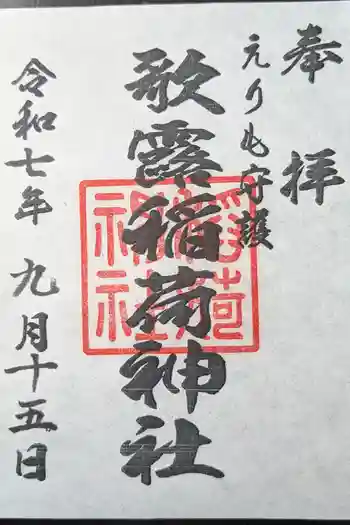 奉拝
えりも守護
歌露稲荷神社
令和七年 九月十五日